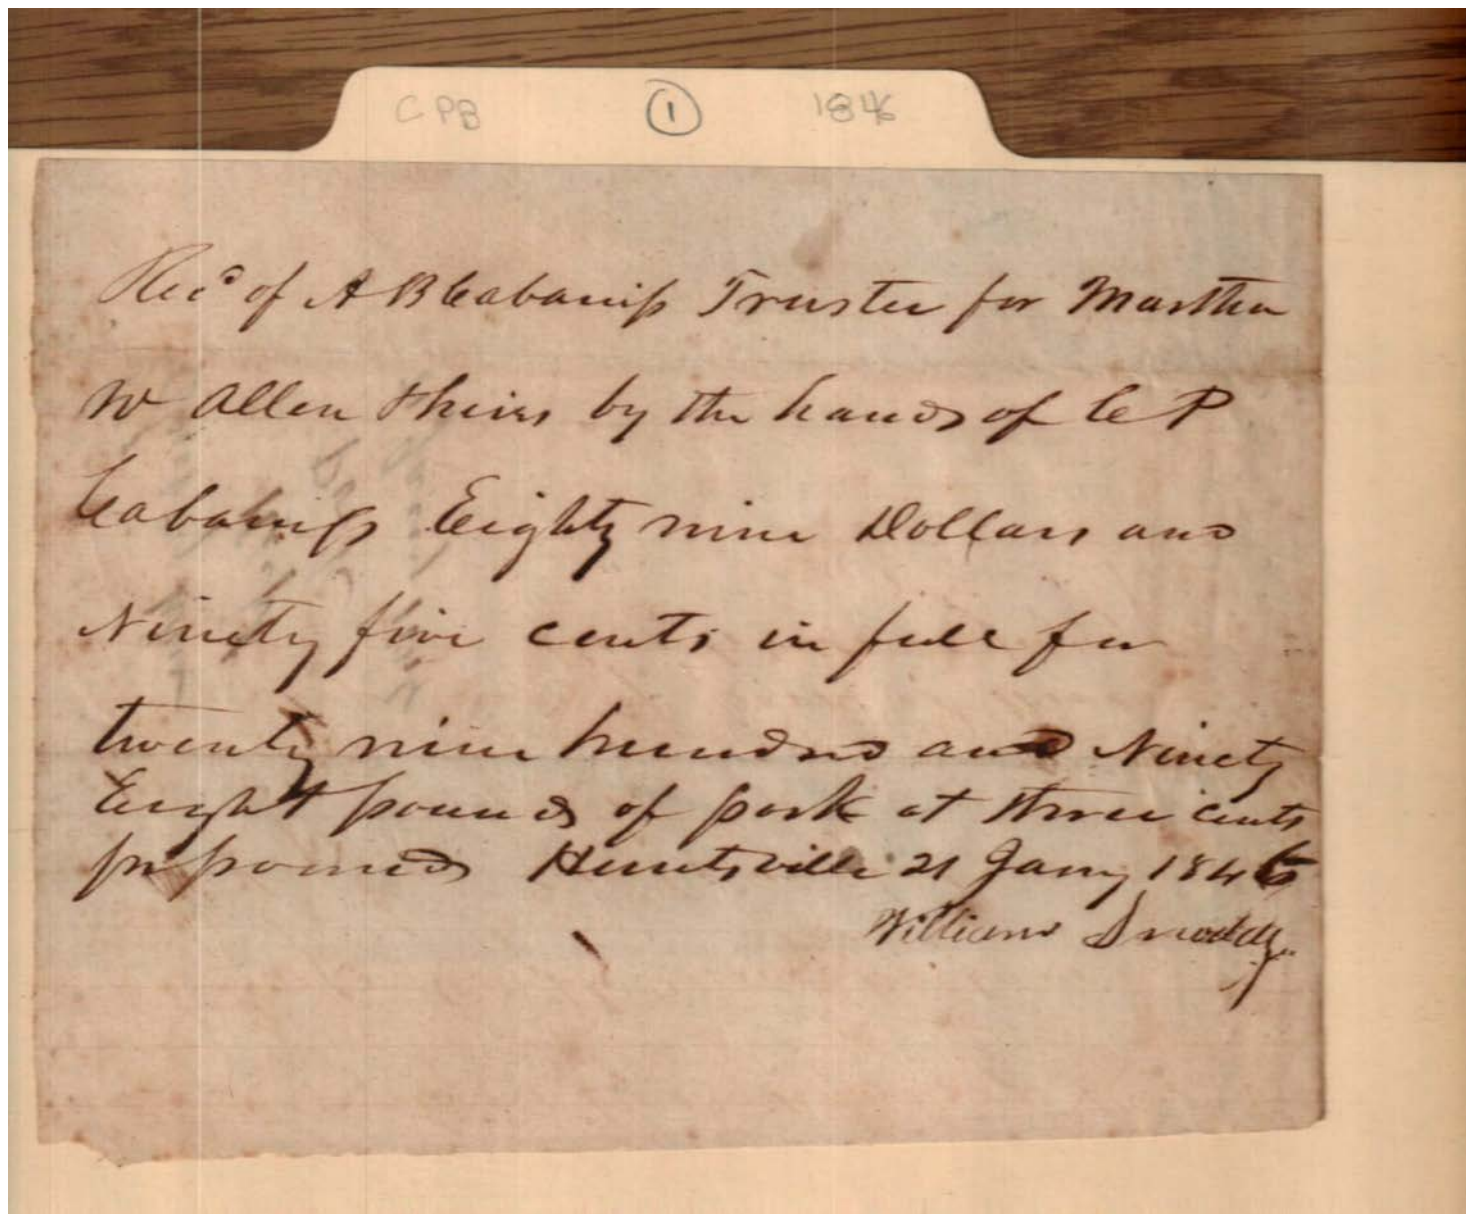 CPB 1 1846
Recd of A B Cabaniss Trustee for Martha
W Allen & heirs by the hands of C P
Cabaniss Eighty nine Dollars and
Ninety five cents in full for
twenty nine hundred and Ninety
Eight pounds of pork at three cents
pr pound Huntsville 21 Jany 1846
William Snoddy